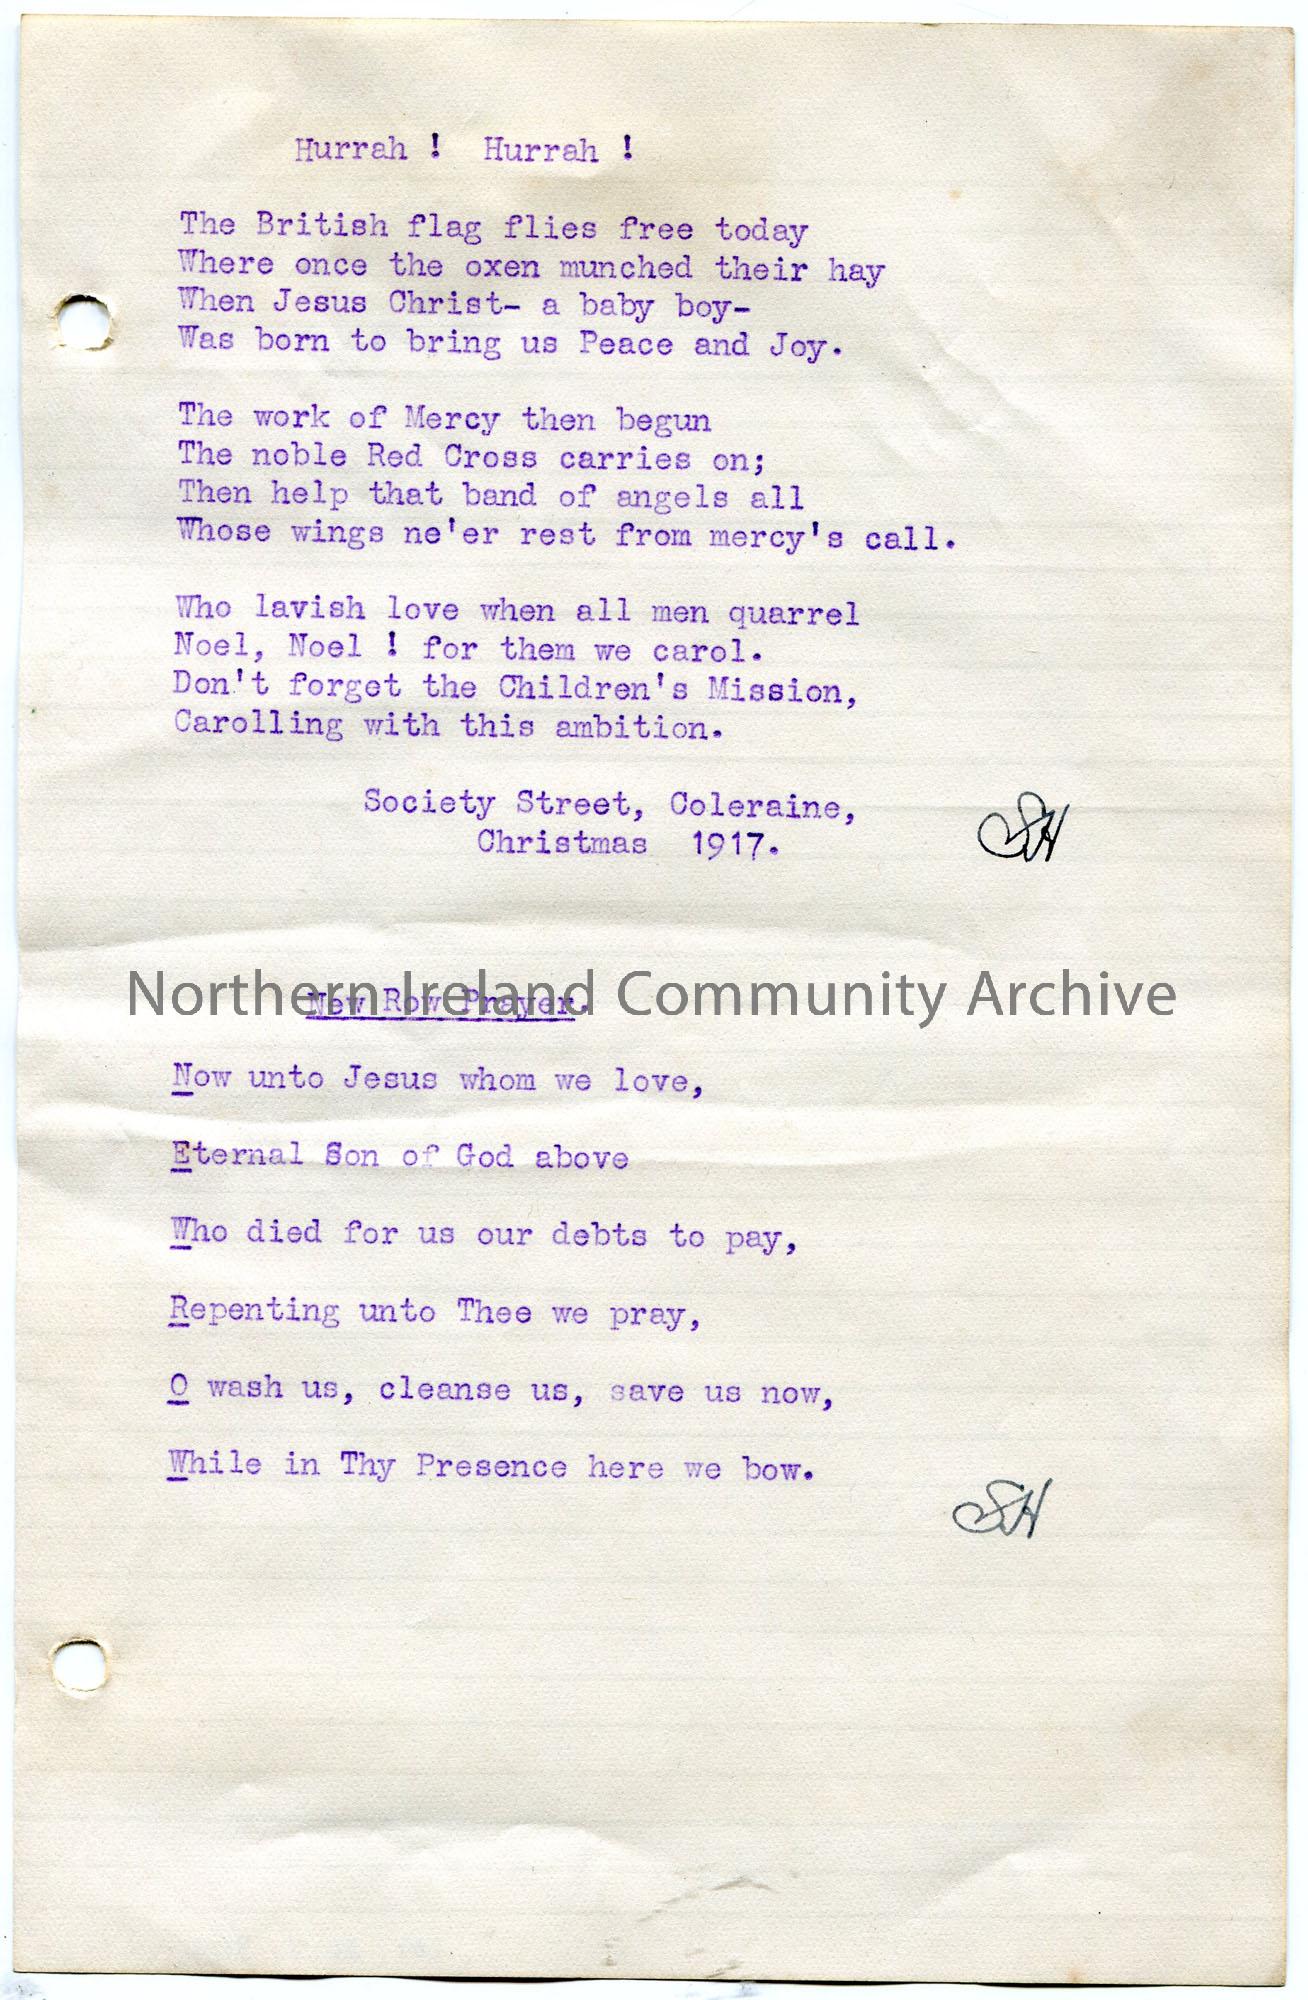 Hurrah !  Hurrah !
The British flag flies free today
Where once the oxen munched their hay
When Jesus Christ- a baby boy-
Was born to bring us Peace and Joy.
The work of Mercy then begun
The noble Red Cross carries on;
Then help that band of angels all
Whose wings ne'er rest from mercy's call.
Who lavish love when all men quarrel
Noel, Noel ! for them we carol.
Don't forget the Children's Mission,
Carolling with this ambition.
Society Street, Coleraine,
Christmas 1917.
SH
Northern Ireland Community Archive
New Row Prayer.
Now unto Jesus whom we love,
Eternal Son of God above
Who died for us our debts to pay,
Repenting unto Thee we pray,
O wash us, cleanse us, save us now,
While in Thy Presence here we bow.
SH